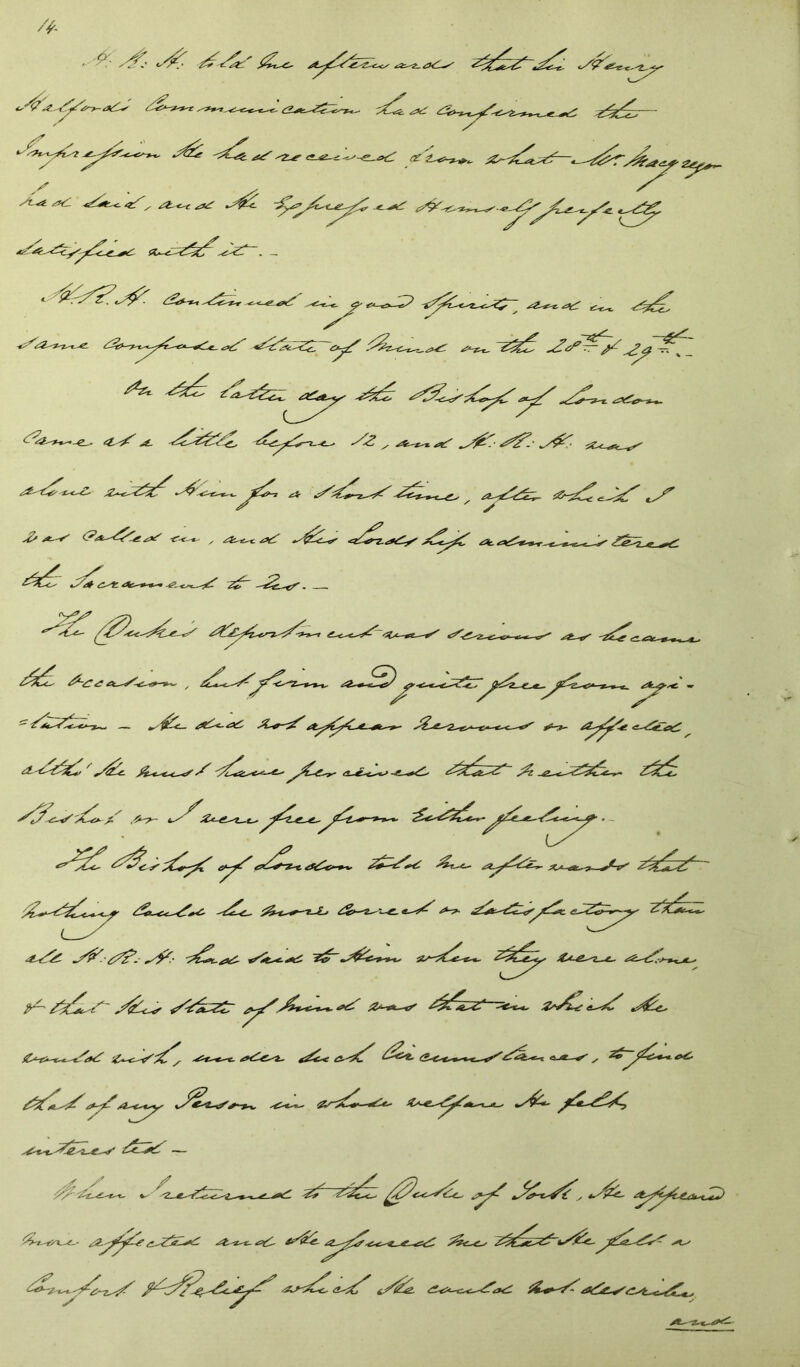 14.
H: R: H: told me afterwards that Sir Henry
Halford's Communication had confirmed the
Impression He had received from what Mr. Macgregor
had said, and He Expressed Himself perfectly
satisfied with it. —
H: R. H. Continued in good Spirits, and in the
same Composed State of Mind on the 28th & 29th. —
On the latter day the Bishop of London
Came at a little before 12, and H: R: H: was
alone with Him for a short time, after which I
was Called in, and His Lordship administered
the Sacrament to Us. —
The Duke's deportment was serious as became
the occasion, but firm and quite free from agi-
=tation — He did not appear nervous or affected,
altho' He must have perceived that neither the
Bishop or I were free from either feeling. —
The Bishop of London told me afterwards that
nothing Could be more Correct or satisfactory than
all H: R: H: had said to Him when they were alone,
& that His State of mind was that in which He
would wish, under such Circumstances, to find
that of any Person in whose welfare He felt
interested —
When I returned to the Duke of York, He appeared
more affected and He assured me that He felt a
Comfort & Relief which He could not describe,
and